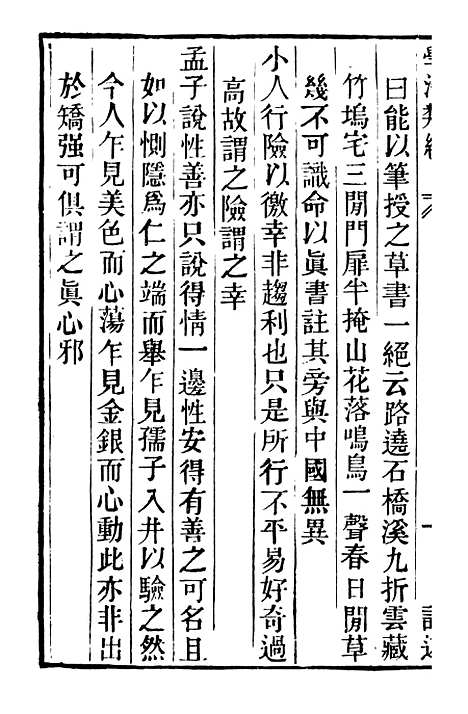 曰能以筆授之草書一絕云路遶石橋溪九折雲藏
竹塢宅三間門扉半掩山花落鳴鳥一聲春日閒草
幾不可識命以眞書註其旁與中國無異
小人行險以徼幸非趨利也只是所行不平易好奇過
高故謂之險謂之幸
孟子說性善亦只說得情一邊性安得有善之可名且
如以惻隱爲仁之端而舉乍見孺子入井以驗之然
今人乍見美色而心蕩乍見金銀而心動此亦非出
於矯强可俱謂之眞心邪